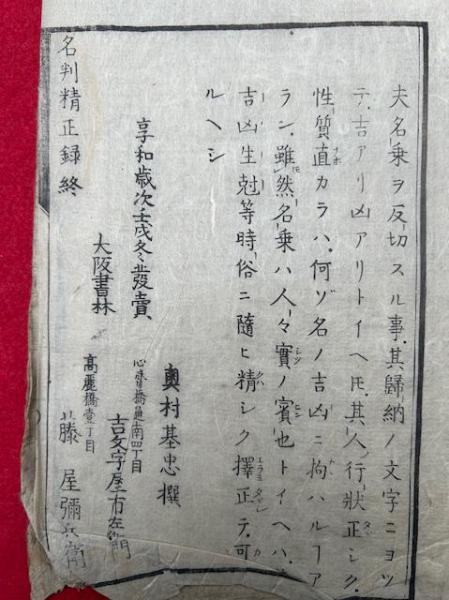 夫名乗ヲ反切スル事其歸納ノ文字ニヨツ
テ吉アリ凶アリトイヘ𪜈其人行状正シク
性質直カラハ何ゾ名ノ吉凶ニ拘ハルヿア
ラン雖然名乗ハ人々實ノ賓也トイヘハ
吉凶生尅等時俗ニ隨ヒ精シク擇正テ可
ルヘシ
奥村基忠撰
享和歳次壬戌冬發賣
心齋橋通南四丁目
吉文字屋市左衛門
大阪書林
高麗橋壹丁目
藤屋彌兵衛
名判精正録終